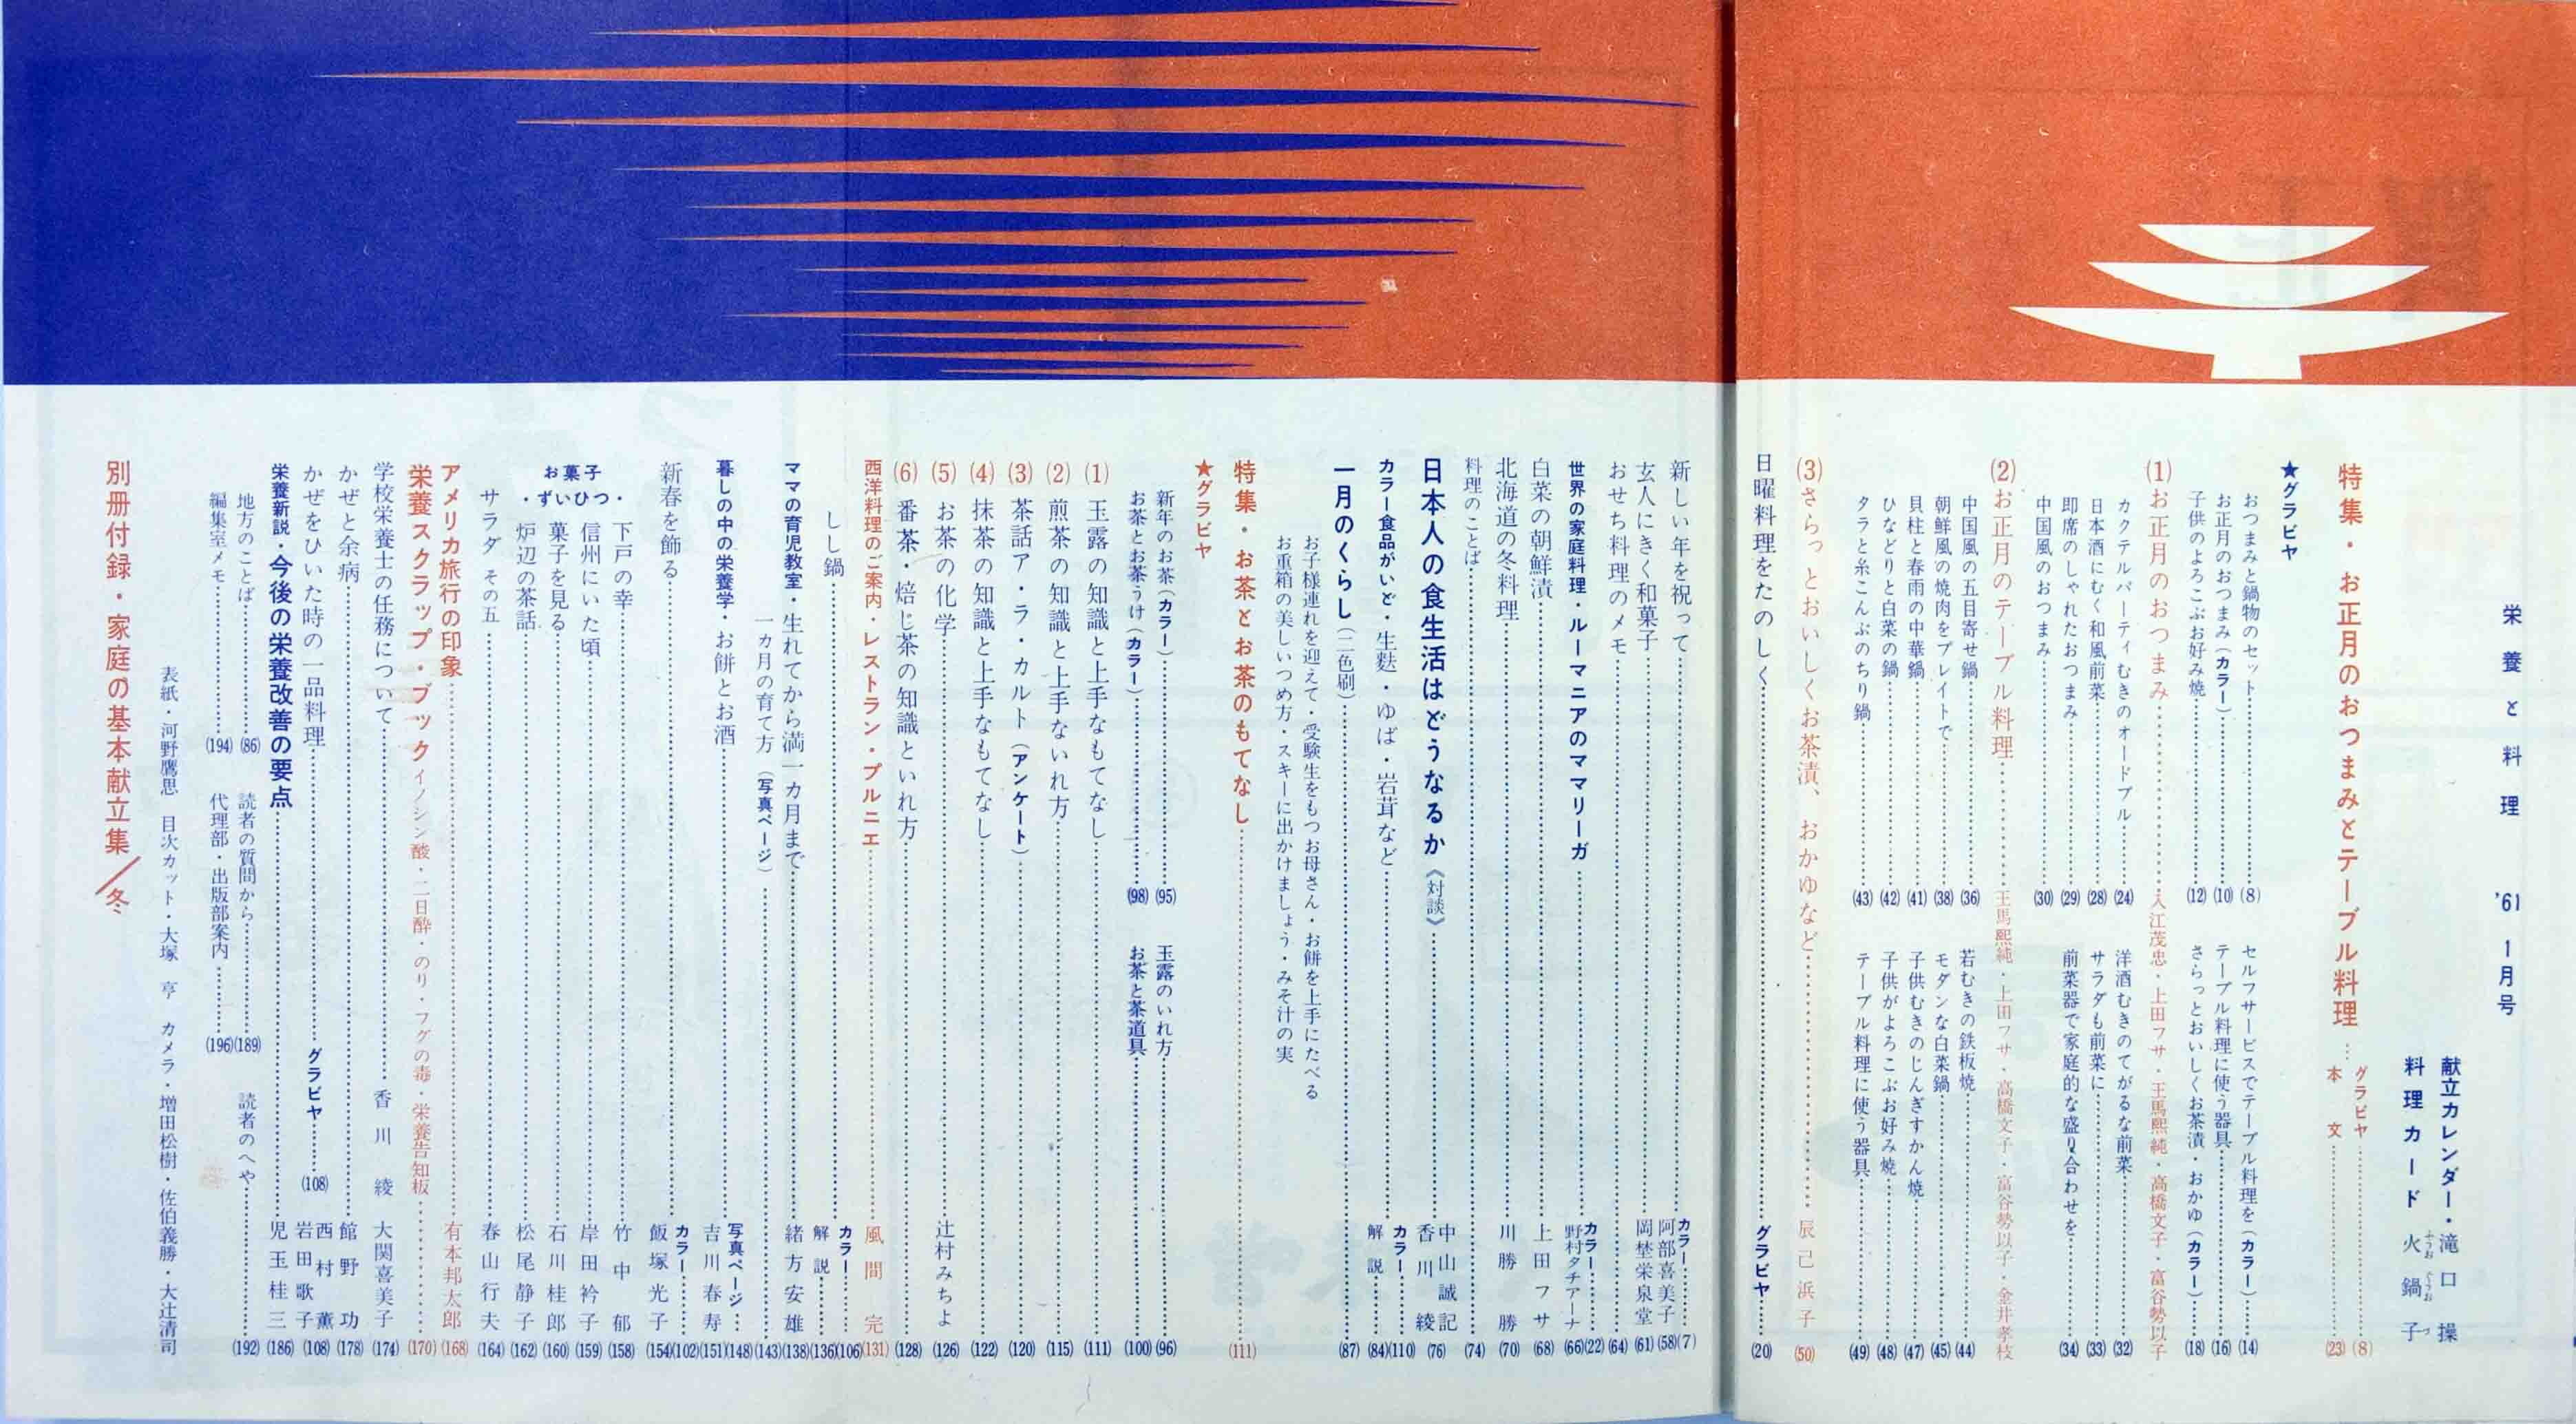 栄養と料理 '61 1月号
献立カレンダー・滝口操
料理カード 火鍋子
特集・お正月のおつまみとテーブル料理……グラビヤ……(8)
本文……(23)
★グラビヤ
おつまみと鍋物のセット……(8) セルフサービスでテーブル料理を(カラー)……(14)
お正月のおつまみ(カラー)……(10) テーブル料理に使う器具……(16)
子供のよろこぶお好み焼……(12) さらっとおいしくお茶漬・おかゆ(カラー)……(18)
(1)お正月のおつまみ……入江茂忠・上田フサ・王馬熙純・高橋文子・富谷勢以子
カクテルパーティむきのオードブル……(24) 洋酒むきのてがるな前菜……(32)
日本酒にむく和風前菜……(28) サラダも前菜に……(33)
即席のしゃれたおつまみ……(29) 前菜器で家庭的な盛り合わせを……(34)
中国風のおつまみ……(30)
(2)お正月のテーブル料理……王馬熙純・上田フサ・高橋文子・富谷勢以子・金井孝枝
中国風の五目寄せ鍋……(36) 若むきの鉄板焼……(44)
朝鮮風の焼肉をプレイトで……(38) モダンな白菜鍋……(45)
貝柱と春雨の中華鍋……(41) 子供むきのじんぎすかん焼……(47)
ひなどりと白菜の鍋……(42) 子供がよろこぶお好み焼……(48)
タラと糸こんぶのちり鍋……(43) テーブル料理に使う器具……(49)
(3)さらっとおいしくお茶漬、おかゆなど……辰己浜子(50)
日曜料理をたのしく……グラビヤ……(20)
新しい年を祝って……カラー……(7)
阿部喜美子(58)
玄人にきく和菓子……岡埜栄泉堂(61)
おせち料理のメモ……(64)
世界の家庭料理・ルーマニアのママリーガ……カラー……(22)
野村タチアーナ(66)
白菜の朝鮮漬……上田フサ(68)
北海道の冬料理……川勝勝(70)
料理のことば……(74)
日本人の食生活はどうなるか《対談》……中山誠記 香川綾(76)
カラー食品がいど・生麩・ゆば・岩茸など……カラー……(110)
解説……(84)
一月のくらし(二色刷)……(87)
お子様連れを迎えて・受験生をもつお母さん・お餅を上手にたべる
お重箱の美しいつめ方・スキーに出かけましょう・みそ汁の実
特集・お茶とお茶のもてなし……(111)
★グラビヤ
新年のお茶(カラー)……(95) 玉露のいれ方……(96)
お茶とお茶うけ(カラー)……(98) お茶と茶道具……(100)
(1)玉露の知識と上手なもてなし……(111)
(2)煎茶の知識と上手ないれ方……(115)
(3)茶話ア・ラ・カルト(アンケート)……(120)
(4)抹茶の知識と上手なもてなし……(122)
(5)お茶の化学……辻村みちよ(126)
(6)番茶・焙じ茶の知識といれ方……(128)
西洋料理のご案内・レストラン・プルニエ……風間完(131)
しし鍋……カラー……(106)
解説……(136)
ママの育児教室・生れてから満一カ月まで……緒方安雄(138)
一カ月の育て方(写真ページ)……(143)
暮しの中の栄養学・お餅とお酒……写真ページ……(148)
吉川春寿(151)
新春を飾る……カラー……(102)
飯塚光子(154)
お菓子・ずいひつ・
下戸の幸……竹中郁(158)
信州にいた頃……岸田衿子(159)
菓子を見る……石川桂郎(160)
炉辺の茶話……松尾静子(162)
サラダ その五……春山行夫(164)
アメリカ旅行の印象……有本邦太郎(168)
栄養スクラップ・ブック イノシン酸・二日酔・のり・フグの毒・栄養告知板……(170)
学校栄養士の任務について……香川綾 大関喜美子(174)
かぜと余病……館野功(178)
かぜをひいた時の一品料理……グラビヤ……(108) 西村薫 岩田歌子(108)
栄養新説・今後の栄養改善の要点……児玉桂三(186)
地方のことば……(86) 読者の質問から……(189) 読者のへや……(192)
編集室メモ……(194) 代理部・出版部案内……(196)
表紙・河野鷹思 目次カット・大塚亨 カメラ・増田松樹・佐伯義勝・大辻清司
別冊付録・家庭の基本献立集/冬